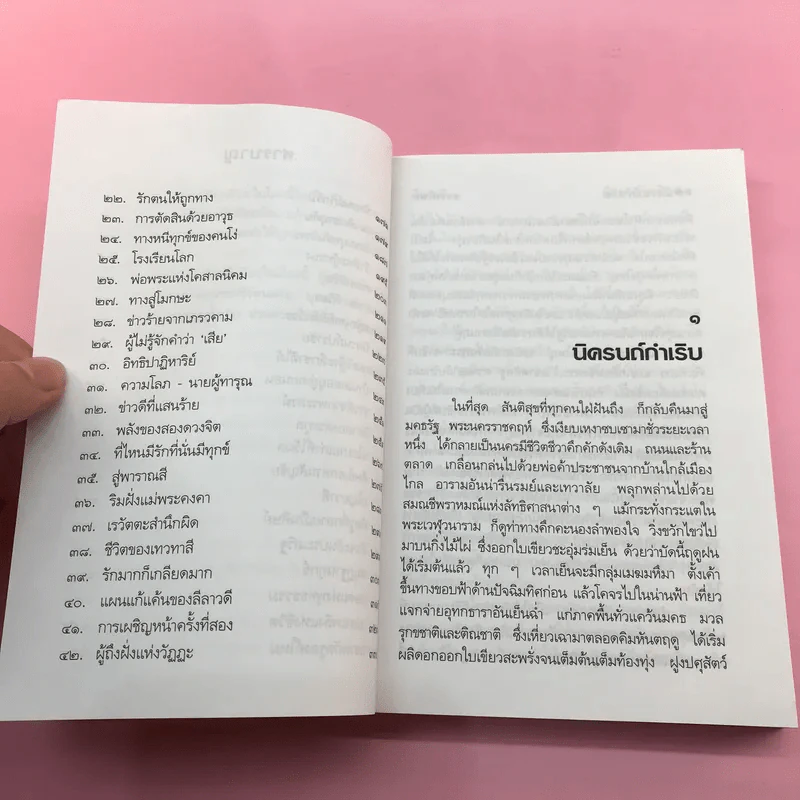 ๒๒. รักตนให้ถูกทาง
๒๓. การตัดสินด้วยอาวุธ
๒๔. ทางหนีทุกข์ของคนโง่
๒๕. โรงเรียนโลก
๒๖. พ่อพระแห่งโคสาลนิคม
๒๗. ทางสู่โมกษะ
๒๘. ข่าวร้ายจากเภรวคาม
๒๙. ผู้ไม่รู้จักคำว่า ‘เสีย’
๓๐. อิทธิปาฏิหาริย์
๓๑. ความโลภ - นายผู้ทารุณ
๓๒. ข่าวดีที่แสนร้าย
๓๓. พลังของสองดวงจิต
๓๔. ที่ไหนมีรักที่นั่นมีทุกข์
๓๕. สู่พาราณสี
๓๖. ริมฝั่งแม่พระคงคา
๓๗. เรวัตตะสำนึกผิด
๓๘. ชีวิตของเทวทาสี
๓๙. รักมากก็เกลียดมาก
๔๐. แผนแก้แค้นของลีลาวดี
๔๑. การเผชิญหน้าครั้งที่สอง
๔๒. ผู้ถึงฝั่งแห่งวัฏฏะ
๑
นิครนถ์กำเริบ
ในที่สุด สันติสุขที่ทุกคนใฝ่ฝันถึง ก็กลับคืนมาสู่
มคธรัฐ พระนครราชคฤห์ ซึ่งเงียบเหงาซบเซามาชั่วระยะเวลา
หนึ่ง ได้กลายเป็นนครมีชีวิตชีวาคึกคักดังเดิม ถนนและร้าน
ตลาด เกลื่อนกล่นไปด้วยพ่อค้าประชาชนจากบ้านใกล้เมือง
ไกล อารามอันน่ารื่นรมย์และเทวาลัย พลุกพล่านไปด้วย
สมณชีพราหมณ์แห่งลัทธิศาสนาต่าง ๆ แม้กระทั่งกระแตใน
พระเวฬุวนาราม ก็ดูท่าทางคึกคะนองลำพองใจ วิ่งขวักไขว่ไป
มาบนกิ่งไม้ไผ่ ซึ่งออกใบเขียวชะอุ่มร่มเย็น ด้วยว่าบัดนี้ฤดูฝน
ได้เริ่มต้นแล้ว ทุก ๆ เวลาเย็นจะมีกลุ่มเมฆมหึมา ตั้งเค้า
ขึ้นทางขอบฟ้าด้านปัจฉิมทิศก่อน แล้วโคจรไปในน่านฟ้า เที่ยว
แจกจ่ายอุทกธาราอันเย็นฉ่ำ แก่ภาคพื้นทั่วแคว้นมคธ มวล
รุกขชาติและติณชาติ ซึ่งเหี่ยวเฉามาตลอดคิมหันตฤดู ได้เริ่ม
ผลิดอกออกใบเขียวสะพรั่งจนเต็มต้นเต็มท้องทุ่ง ฝูงปศุสัตว์